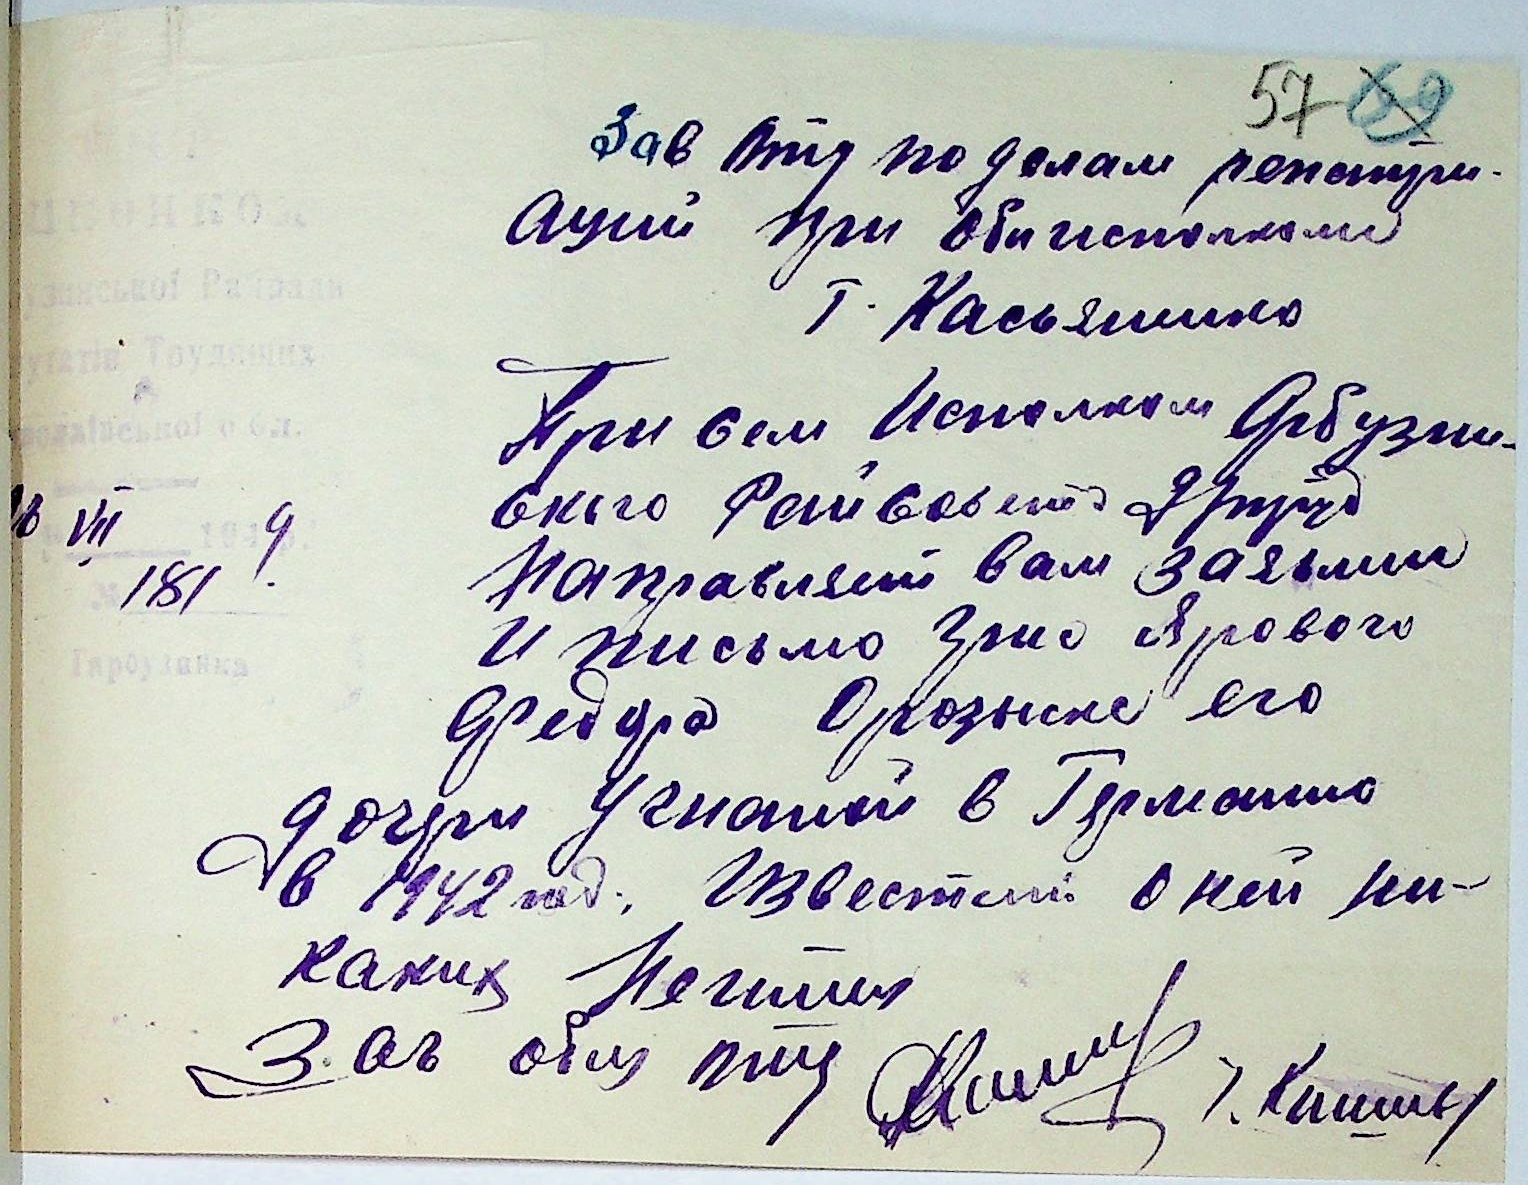 57 69
Зав по делам репатри-
аций при Облисполкоме
Т. Касьяненко
При сем Исполком Арбузин-
ского Райсовета
Направляет вам заявлени
и письмо Ярового
Федора О розыске его
дочери Угнаной в Германию
в 1942 год. Известий о ней ни-
каких
Зав общ
Виконком
Райради
депутатів Трудящих
Миколаївської обл.
VII
181
194 р.
№
Гарбузинка